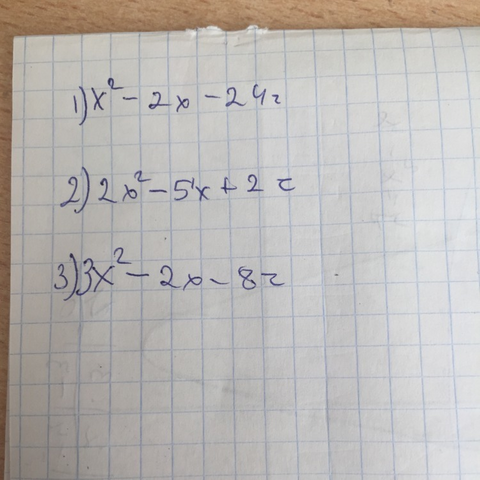 1) x² - 2x - 24 =
2) 2x² - 5x + 2 =
3) 3x² - 2x - 8 =